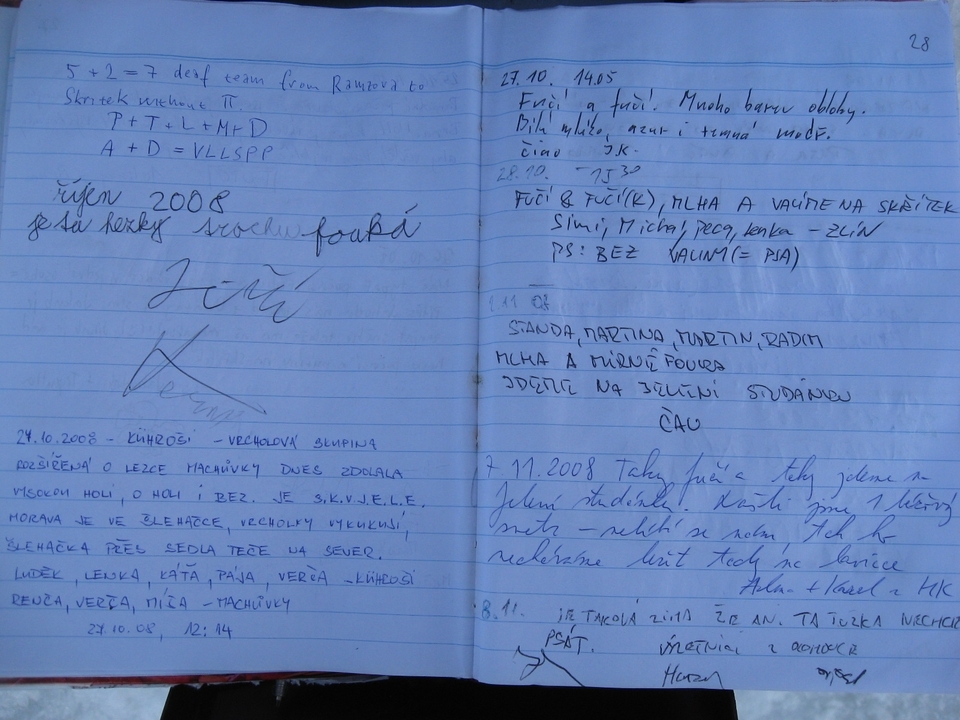 5 + 2 = 7 deaf team from Ramzova to
Skritek without π.
P + T + L + M + D
A + D = VLLSPP
říjen 2008
je tu hezky trochu fouká
Jiří
27.10.2008 - KÜHROŠI - VRCHOLOVÁ SKUPINA
ROZŠÍŘENÁ O LEZCE MACHŮVKY DNES ZDOLALA
VYSOKOU HOLI, O HOLI I BEZ. JE S.K.V.J.E.L.E.
MORAVA JE VE ŠLEHAČCE, VRCHOLKY VYKUKUJÍ,
ŠLEHAČKA PŘES SEDLA TEČE NA SEVER.
LUDĚK, LENKA, KÁŤA, PÁJA, VERČA - KÜHROŠI
RENČA, VERČA, MÍŠA - MACHŮVKY
27.10.08, 12:14
28
27.10. 14.05
Fučí a fučí. Mnoho barev oblohy.
Bílá mléko, azur i temná modř.
čiao J.K.
28.10. 15 30
FUČÍ & FUČÍ(K), MLHA A VALÍME NA SKŘÍTEK
Simi, Michal, peca, lenka - ZLÍN
PS: BEZ VALINY (= PSA)
1.11 08
STANDA, MARTINA, MARTIN, RADIM
MLHA A MÍRNĚ FOUKA
JDEME NA JELENÍ STUDÁNKU
ČAU
7 11.2008 Taky fučí a taky jdeme na
Jelení studánku. Našli jsme 1 léčivý
- nelíbí se nám, tak ho
necháváme ležet tady na lavičce
+ Karel z HK
8.11. JE TAKOVÁ ZIMA ŽE ANI TA TUŽKA NECHCE
PSÁT. z